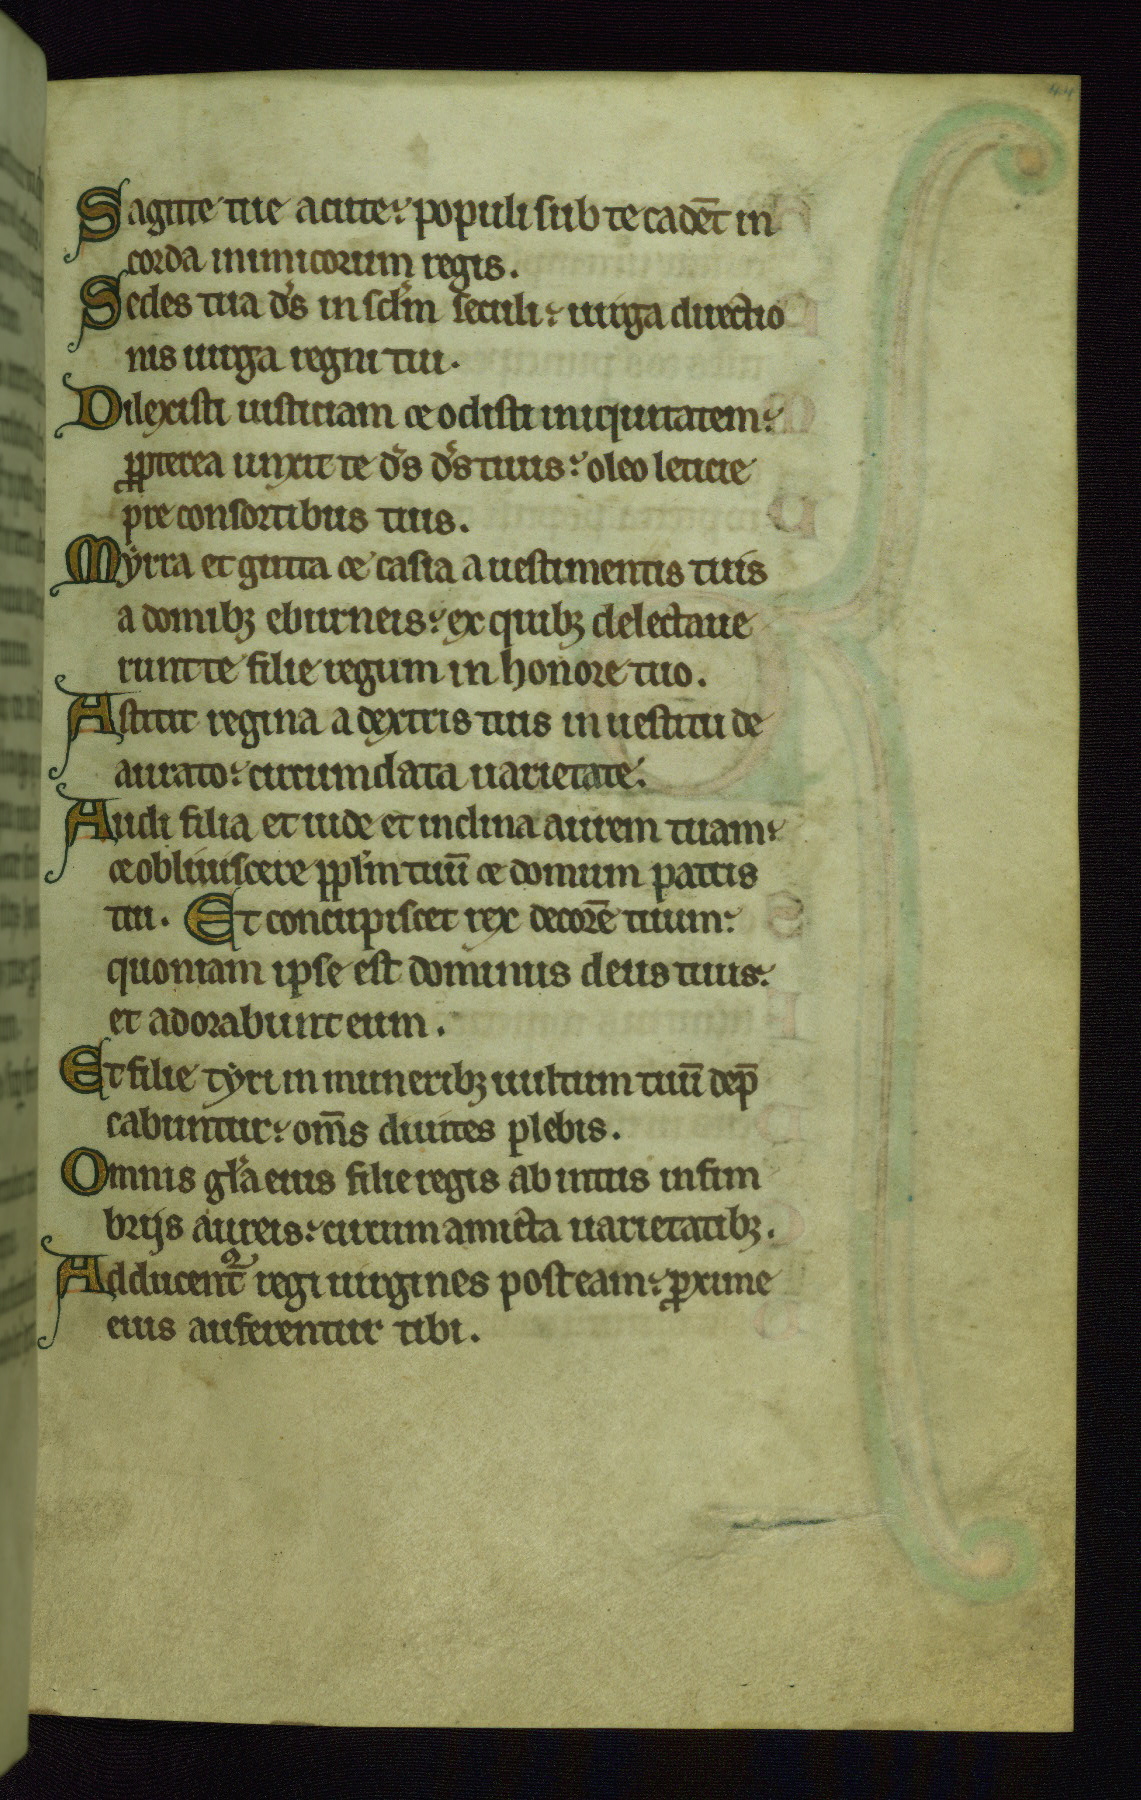 44
Sagitte tue acute: populi sub te cadēt in
corda inimicorum regis.
Sedes tua d̄s in sc̄lm seculi: uirga directio
nis uirga regni tui.
Dilexisti iusticiam ⁊ odisti iniquitatem:
ꝓpterea unxit te d̄s d̄s tuus: oleo leticie
pre consortibus tuis.
Myrra et gutta ⁊ casia a uestimentis tuis
a domibꝫ eburneis: ex quibꝫ delectaue
runt te filie regum in honore tuo.
Astitit regina a dextris tuis in uestitu de
aurato: circumdata uarietate.
Audi filia et uide et inclina aurem tuam:
⁊ obliuiscere pp̄lm tuū ⁊ domum patris
tui. Et concupiscet rex decorē tuum:
quoniam ipse est dominus deus tuus:
et adorabunt eum.
Et filie tyri in muneribꝫ uultum tuū dep̄
cabuntur: om̄s diuites plebis.
Omnis gl̄a eius filie regis ab intus in fim
brijs aureis: circumamicta uarietatibꝫ.
Adducent᷑ regi uirgines post eam: ꝓxime
eius afferentur tibi.